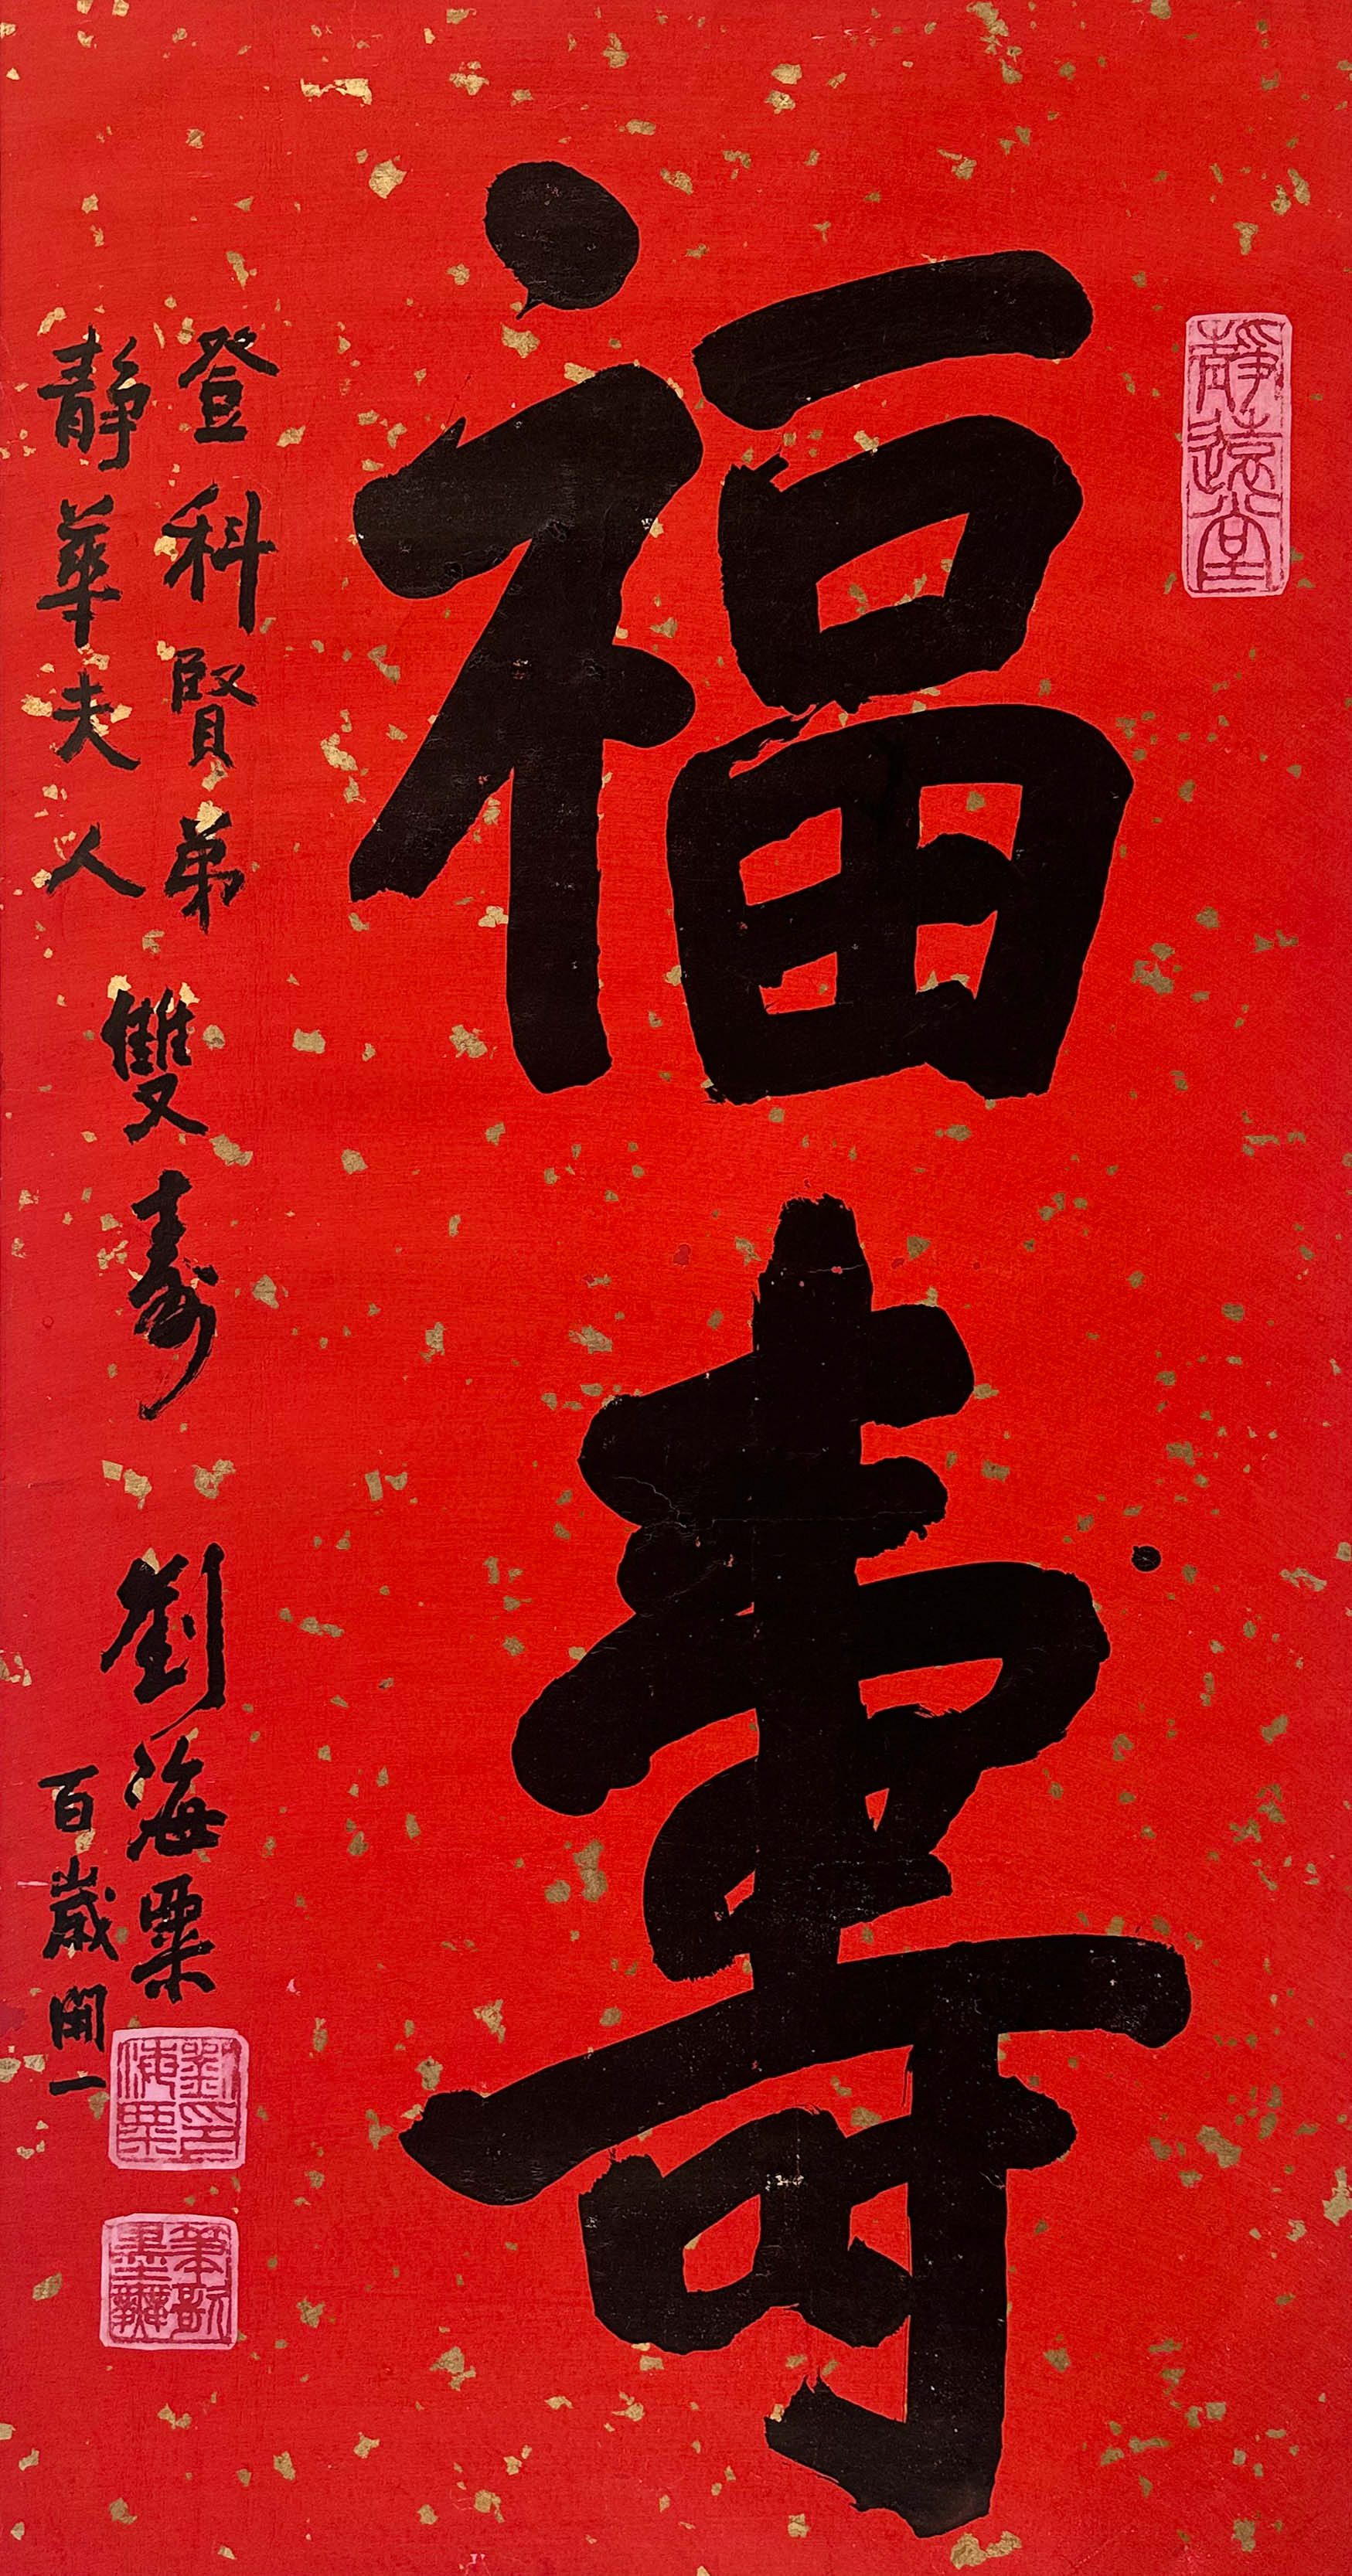 福壽
登科賢弟
靜華夫人
雙壽
劉海粟
百歲開一
靜遠堂
劉海粟印